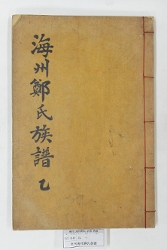 海州鄭氏族譜 乙